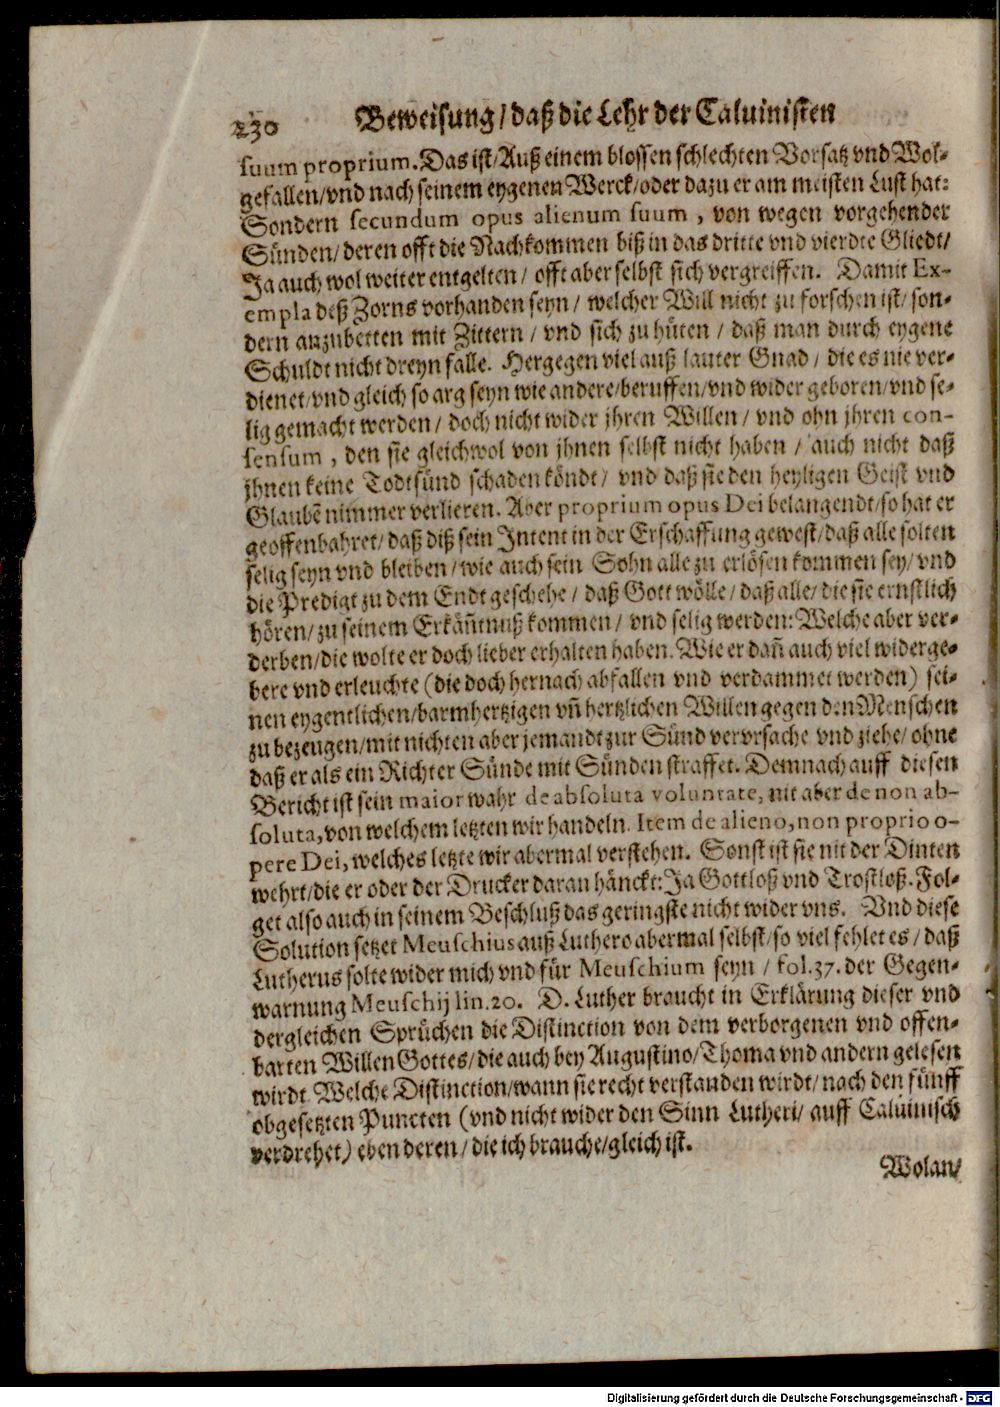 230 Beweisung/ daß die Lehr der Caluinisten
suum proprium. Das ist/ Auß einem blossen schlechten Vorsatz vnd Wol-
gefallen/ vnd nach seinem eygenen Werck/ oder dazu er am meisten Lust hat:
Sondern secundum opus alienum suum, von wegen vorgehender
Sünden/ deren offt die Nachkommen biß in das dritte vnd vierdte Gliedt/
Ja auch wol weiter entgelten/ offt aber selbst sich vergreiffen. Damit Ex-
empla deß Zorns vorhanden seyn/ welcher Will nicht zu forschen ist/ son-
dern anzubetten mit Zittern/ vnd sich zu hüten/ daß man durch eygene
Schuldt nicht dreyn falle. Hergegen viel auß lauter Gnad/ die es nie ver-
dienet/ vnd gleich so arg seyn wie andere/ beruffen/ vnd wider geboren/ vnd se-
lig gemacht werden/ doch nicht wider jhren Willen/ vnd ohn jhren con-
sensum, den sie gleichwol von jhnen selbst nicht haben/ auch nicht daß
jhnen keine Todtsünd schaden köndt/ vnd daß sie den heyligen Geist vnd
Glaubē nimmer verlieren. Aber proprium opus Dei belangendt/ so hat er
geoffenbahret/ daß diß sein Intent in der Erschaffung gewest/ daß alle solten
selig seyn vnd bleiben/ wie auch sein Sohn alle zu erlösen kommen sey/ vnd
die Predigt zu dem Endt geschehe/ daß Gott wölle/ daß alle/ die sie ernstlich
hören/ zu seinem Erkäñtnuß kommen/ vnd selig werden: Welche aber ver-
derben/ die wolte er doch lieber erhalten haben. Wie er dañ auch viel widerge-
bere vnd erleuchte (die doch hernach abfallen vnd verdammet werden) sei-
nen eygentlichen/ barmhertzigen vñ hertzlichen Willen gegen den Menschen
zu bezeugen/ mit nichten aber jemandt zur Sünd vervrsache vnd ziehe/ ohne
daß er als ein Richter Sünde mit Sünden straffet. Demnach auff diesen
Bericht ist sein maior wahr de absoluta voluntate, nit aber de non ab-
soluta, von welchem letzten wir handeln. Item de alieno, non proprio o-
pere Dei, welches letzte wir abermal verstehen. Sonst ist sie nit der Dinten
wehrt/ die er oder der Drucker daran hänckt: Ja Gottloß vnd Trostloß. Fol-
get also auch in seinem Beschluß das geringste nicht wider vns. Vnd diese
Solution setzet Meuschius auß Luthero abermal selbst/ so viel fehlet es/ daß
Lutherus solte wider mich vnd für Meuschium seyn/ fol. 37. der Gegen-
warnung Meuschij lin. 20. D. Luther braucht in Erklärung dieser vnd
dergleichen Sprüchen die Distinction von dem verborgenen vnd offen-
barten Willen Gottes/ die auch bey Augustino/ Thoma vnd andern gelesen
wirdt. Welche Distinction/ wann sie recht verstanden wirdt/ nach den fünff
obgesetzten Puncten (vnd nicht wider den Sinn Lutheri/ auff Caluinisch
verdrehet) eben deren/ die ich brauche/ gleich ist.
Wolan/
Digitalisierung gefördert durch die Deutsche Forschungsgemeinschaft - DFG